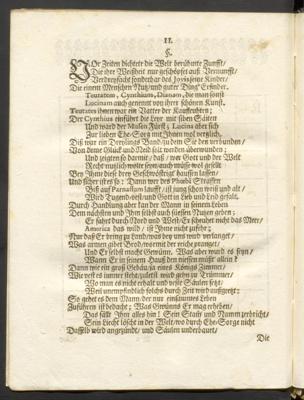 II.
§.
VOr Zeiten dichtete die Welt berühmte Zunfft/
Die ihre Weisheit nur geschöpfft auß Vernunfft/
Verdreyfacht sonderbar des Jovis seine Kinder/
Die einem Menschen Nutz und guter Ding' Erfinder.
Teutatem, Cynthium, Dianam, die man sonst
Lucinam auch genennt von ihrer schönen Kunst.
Teutates ihnen war ein Vatter der Kauffleuthen;
Der Cynthius einführt die Leyr mit siben Säiten
Und ward der Musen Fürst; Lucina aber sich
Zur lieben Ehe-Sorg mit Ihnen wol verglich.
Diß war ein Dreylings Band/zu dem Sie des verbunden/
Von denen Glück und Neid seit werden überwunden;
Und zeigten so darmit/ daß/ wer Gott und der Welt
Recht nutzlich wolte seyn/auch müste wol gestellt
Bey Ihme diese drey Geschwisterigt haussen lassen/
Und sicher ist es so: Dann wer des Phœbi Strassen
Biß auf Parnassum laufft/ist jung schon weiß und alt/
Wird Tugend-voll/und Gott in Lieb und Leid gefalt.
Durch Handlung aber kan der Mann in seinem Leben
Dem nächsten und Ihm selbst auch süessen Nutzen geben:
Er fahrt durch Nord und West/Er scheuhet nicht das Meer/
America das wild/ ist Ihme nicht zusehr;
Nur daß Er bring zu Land/was bey uns wird verlanget/
Was armen gibet Brod/wormit der reiche pranget/
Und Er selbst mache Gewinn. Was aber wurd es seyn/
Wann Er in seinem Hauß den niessen müßt allein?
Dann wie ein groß Gebäu/ja eines Königs Zimmer/
Wie vest es immer steh/zuletst muß gehn zu Trümmer/
Wo man es nicht erhalt und neue Säulen setzt/
Weil unempfindlich solchs durch Zeit wird außgewetzt:
So gehet es dem Mann/der nur einsames Leben
Zuführen ist bedacht: Was Gwinns Er mag erheben/
Das fällt Ihm alles hin! Sein Stam und Namm zerbricht/
Sein Liecht löscht in der Welt/wo durch Ehe-Sorge nicht
Dasselb wird angezündt/ und Säulen underbauet/
Die